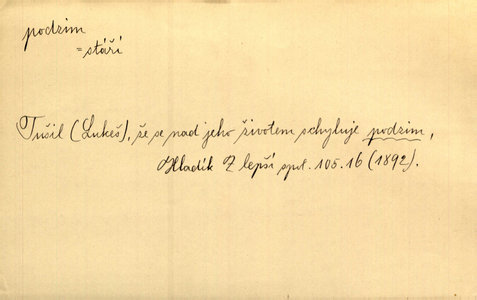 podzim
= stáří
Tušil (Lukeš), že se nad jeho životem schyluje podzim,
Hladík Z lepší spol. 105.16 (1892).